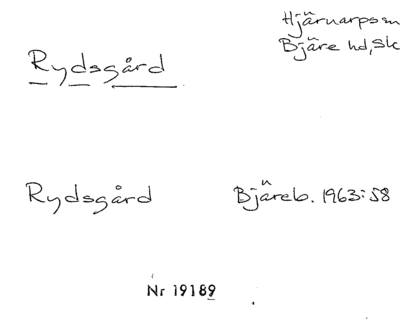 Hjärnarps sn
Bjäre hd, Sk
Rydsgård
Rydsgård Bjäreb. 1963:58
Nr 19189